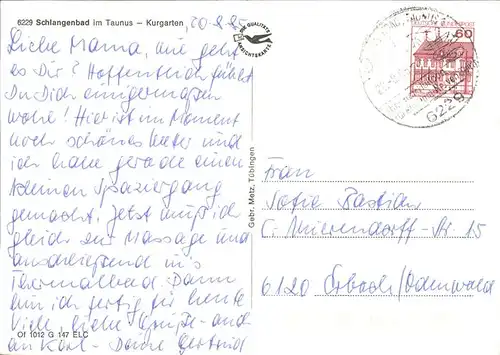 6229 Schlangenbad im Taunus – Kurgarten, 20.8.86
Liebe Mama, wie geht
es Dir? Hoffentlich fühlst
Du Dich einigermaßen
wohl! Hier ist im Moment
noch schönes Wetter und
ich habe gerade einen
kleinen Spaziergang
gemacht. Jetzt muß ich
gleich zur Massage und
anschließend in's
Thermalbad. Dann
bin ich fertig für heute
Viele liebe Grüße – auch
an Karl – Deine Gertrud
Of 1012 G 147 ELC
DIE QUALITÄTS
ANSICHTSKARTE
Gebr. Metz, Tübingen
60
6229
Frau
Sofie Bastian
C. Mierendorff-Str. 15
6120 Erbach/Odenwald